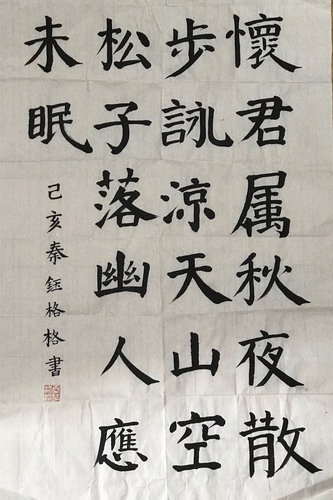 懷君属秋夜散
步詠涼天山空
松子落幽人應
未眠
己亥秦鈺格格書